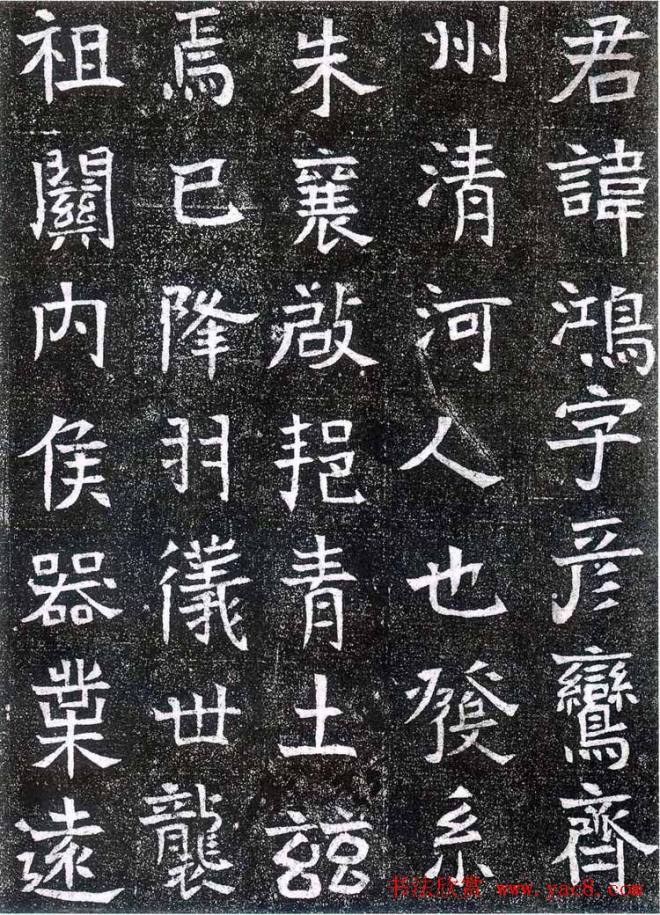 君諱鴻字彦鸞齊
州清河人也發系
朱襄啟挹青土茲
焉已降羽儀世襲
祖關内侯器業遠
书法欣赏 www.yac8.com